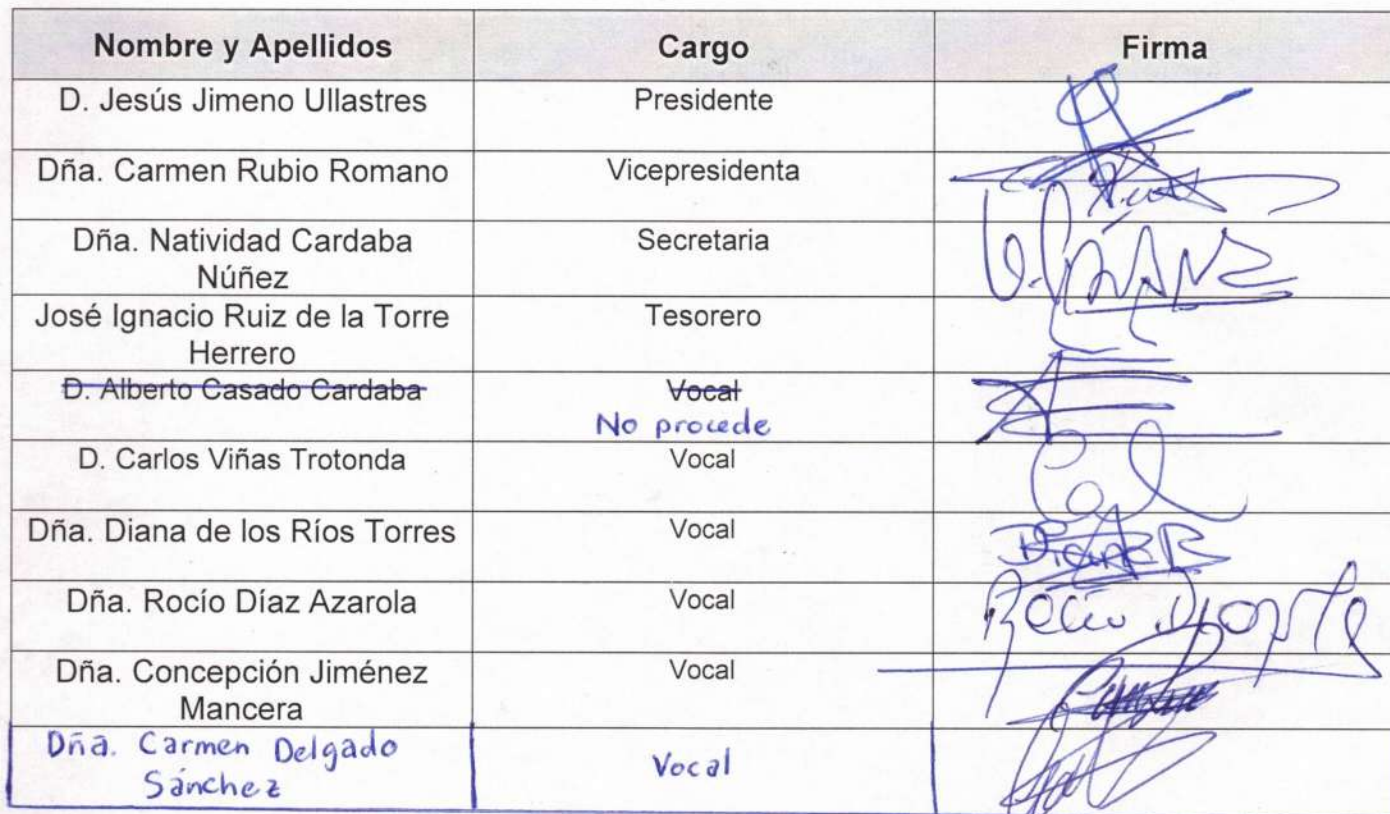 Nombre y Apellidos Cargo Firma
D. Jesús Jimeno Ullastres Presidente
Dña. Carmen Rubio Romano Vicepresidenta
Dña. Natividad Cardaba Secretaria
Núñez
José Ignacio Ruiz de la Torre Tesorero
Herrero
D. Alberto Casado Cardaba Vocal
No procede
D. Carlos Viñas Trotonda Vocal
Dña. Diana de los Ríos Torres Vocal
Dña. Rocío Díaz Azarola Vocal
Rocío
Dña. Concepción Jiménez Vocal
Mancera
Dña. Carmen Delgado Vocal
Sánchez